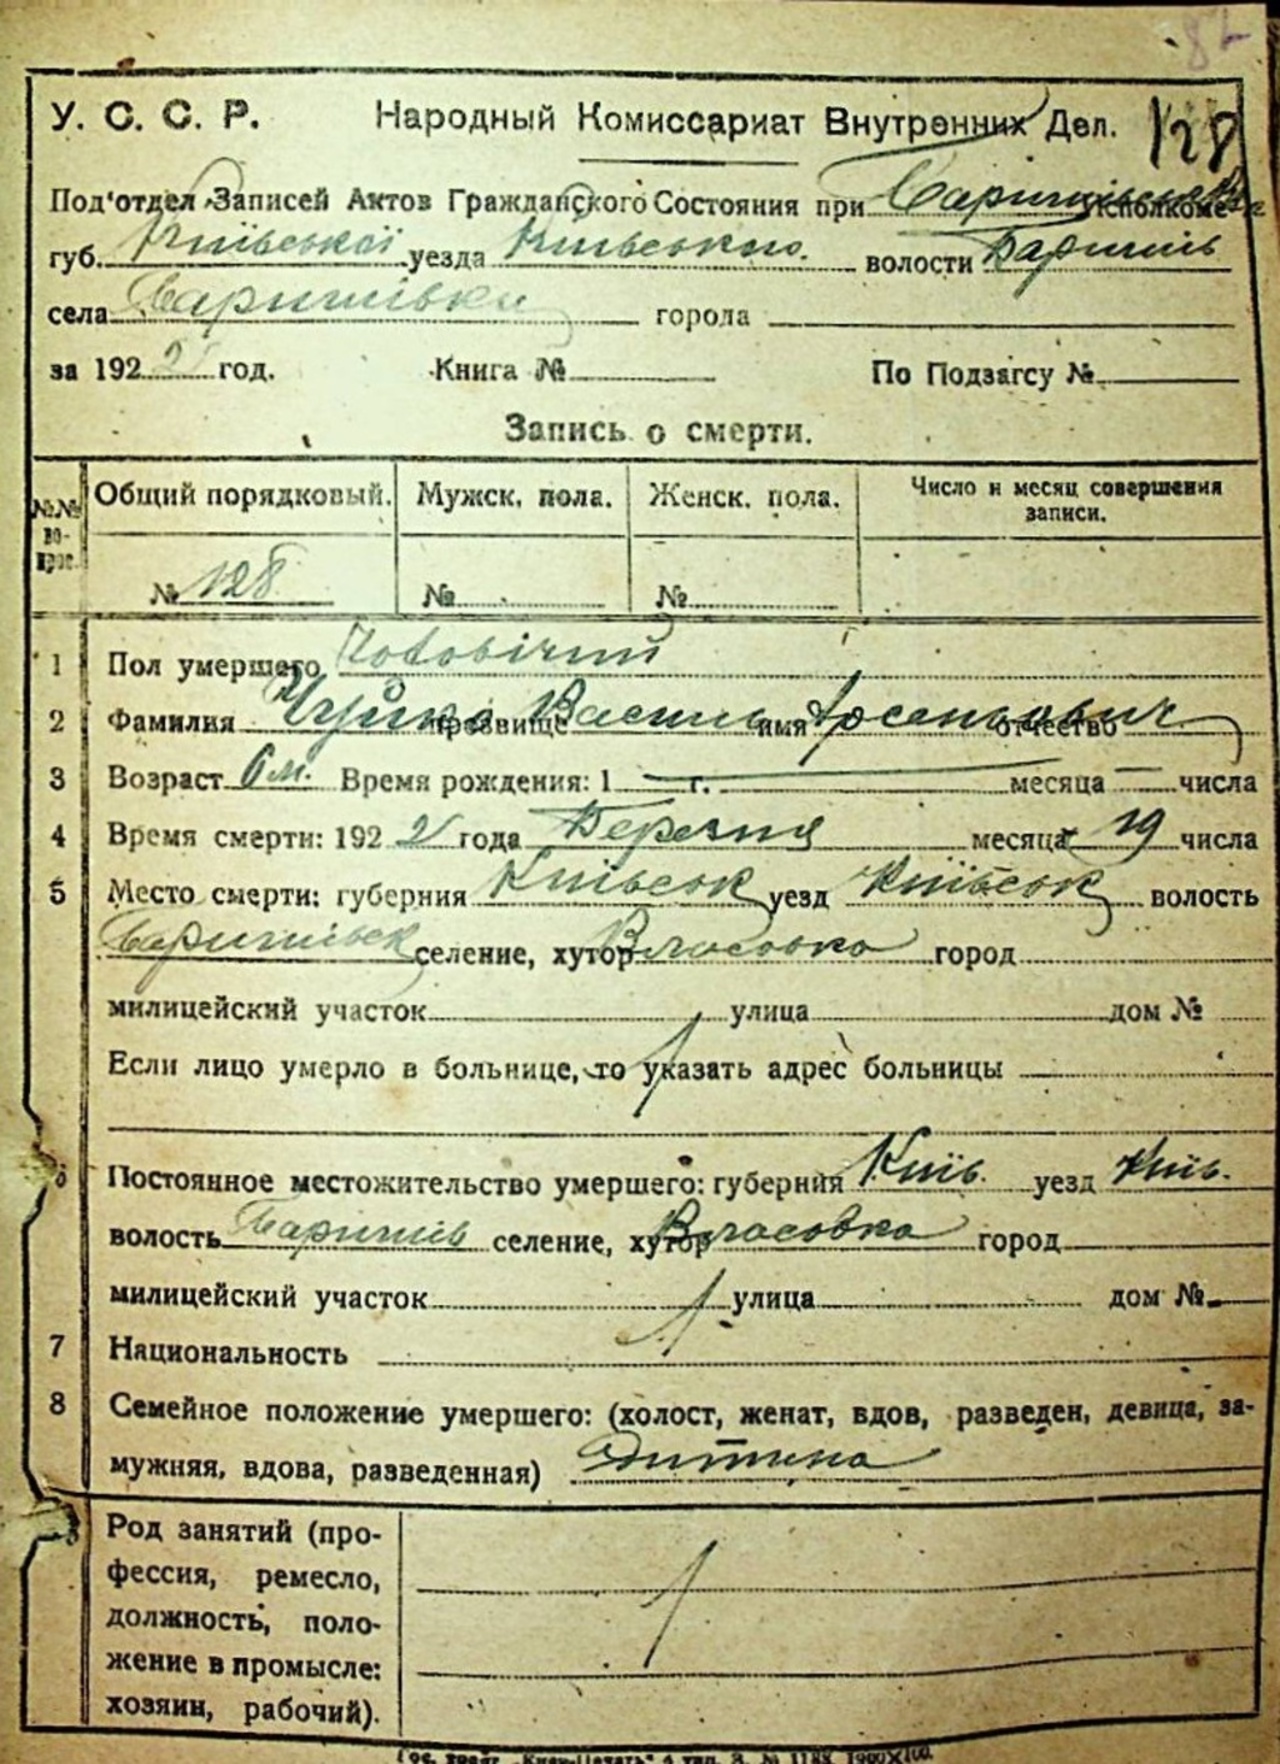 У. С. С. Р. Народный Комиссариат Внутренних Дел. 128
Под'отдел Записей Актов Гражданского Состояния при Исполкоме
губ. Київської уезда Київського волости Баришів
села Баришівки города
за 192 2 год. Книга № По Подзагсу №
Запись о смерти.
№№ вопрос. Общий порядковый. Мужск. пола. Женск. пола. Число и месяц совершения записи.
№ 128 № №
1 Пол умершего Чоловічий
2 Фамилия прозвище Василь имя Арсеньович отчество
3 Возраст 6 м. Время рождения: 1 — г. месяца — числа
4 Время смерти: 192 2 года Березня месяца 19 числа
5 Место смерти: губерния Київськ уезд Київськ волость
Баришівськ селение, хутор Власовка город
милицейский участок улица дом №
Если лицо умерло в больнице, то указать адрес больницы
6 Постоянное местожительство умершего: губерния Київ. уезд Київ.
волость Баришів селение, хутор Власовка город
милицейский участок улица дом №
7 Национальность
8 Семейное положение умершего: (холост, женат, вдов, разведен, девица, за-
мужняя, вдова, разведенная) Дитина
Род занятий (про-
фессия, ремесло,
должность, поло-
жение в промысле:
хозяин, рабочий).